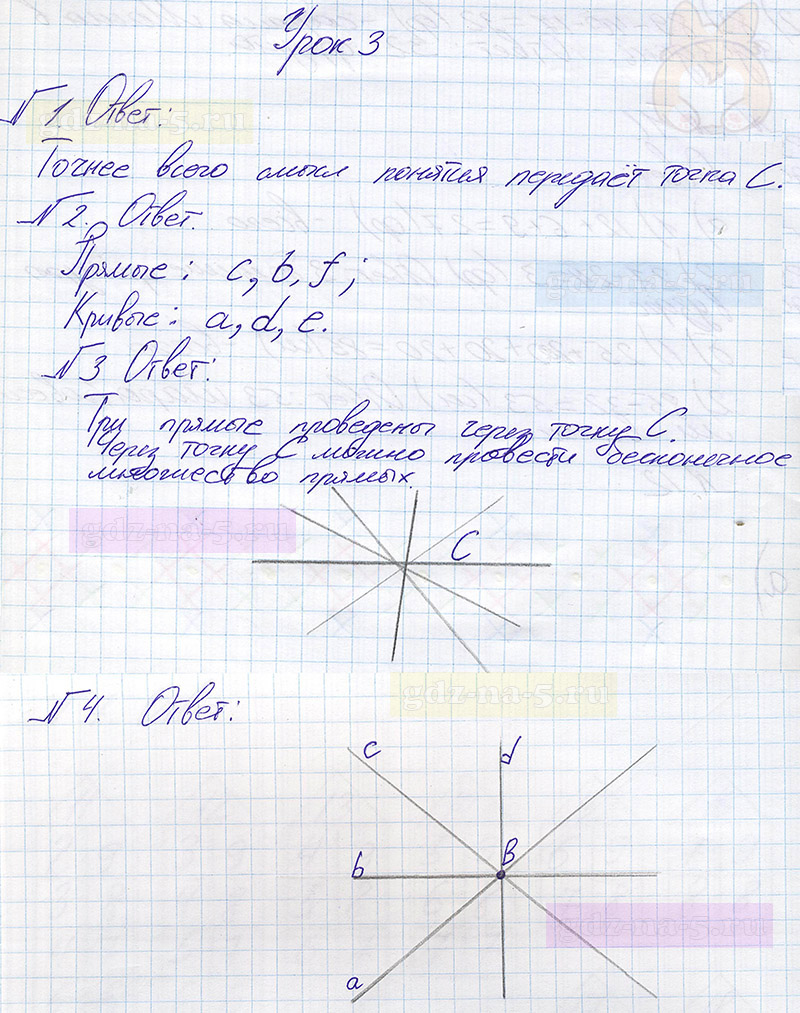 Урок 3
№ 1 Ответ:
Точнее всего смысл понятия передаёт точка С.
№ 2. Ответ.
Прямые: c, b, f;
Кривые: a, d, e.
№ 3 Ответ:
Три прямые проведены через точку С.
Через точку С можно провести бесконечное
множество прямых.
C
№ 4. Ответ:
c d
b B
a
gdz-na-5.ru
gdz-na-5.ru
gdz-na-5.ru
gdz-na-5.ru
gdz-na-5.ru